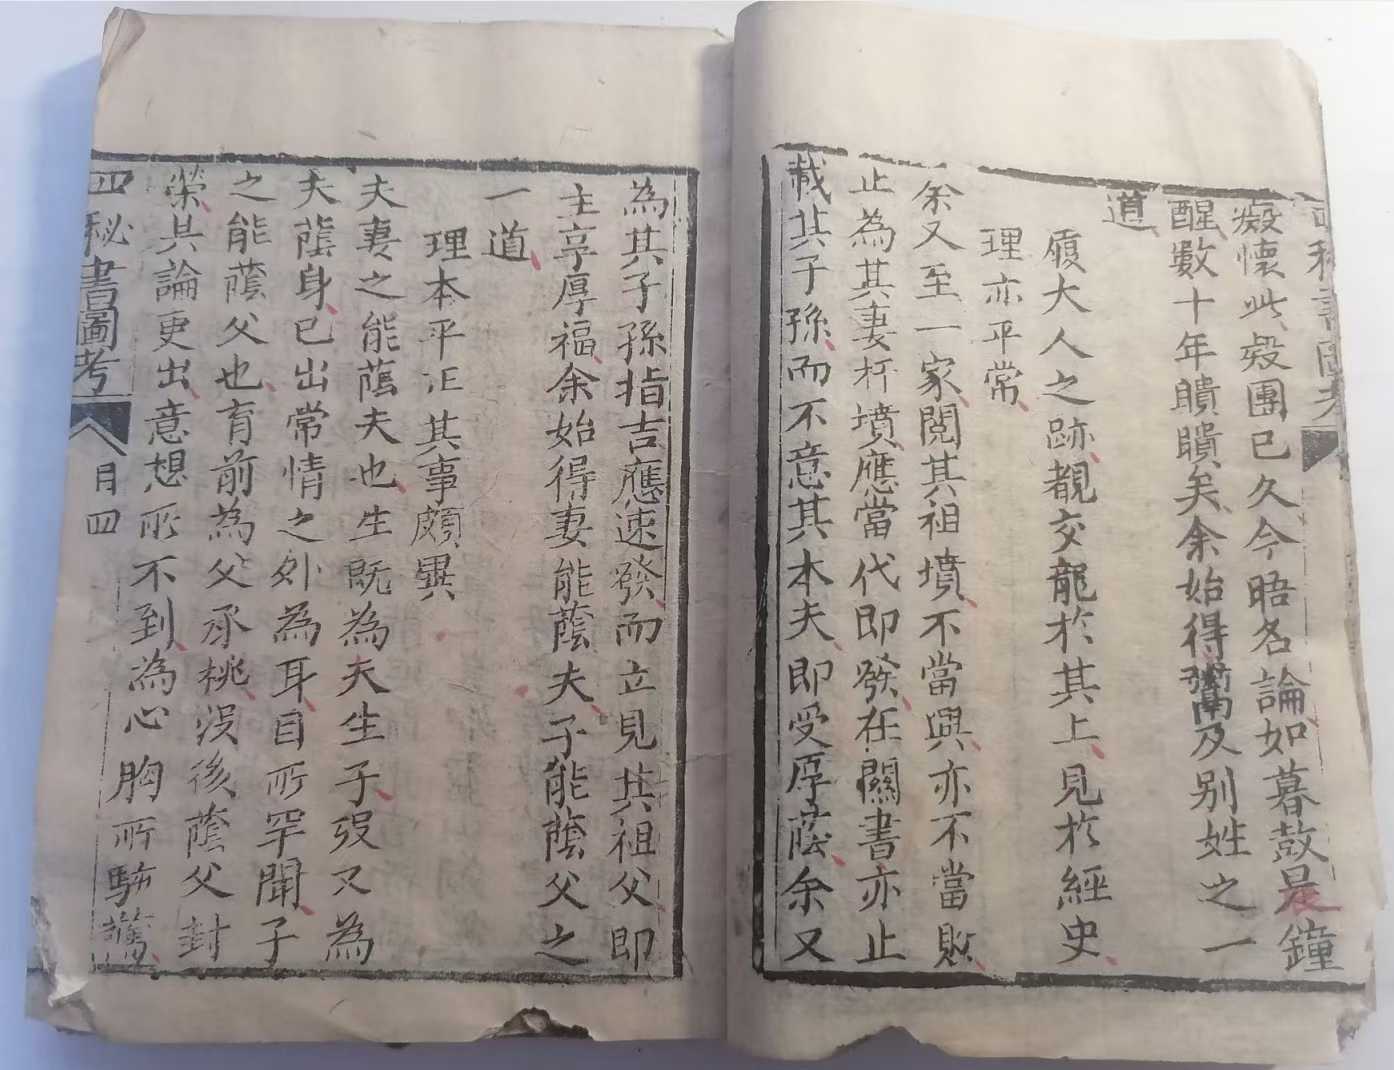 癡懷此殼團已久今晤名論如暮鼓晨鐘
醒數十年瞶瞶矣余始得鬻及别姓之一
道
履大人之跡觀交龍於其上見於經史
理亦平常
余又至一家閲其祖墳不當興亦不當敗
止為其妻杯墳應當代即發在關書亦止
載其子孫而不意其本夫即受厚蔭余又
為其子孫指吉應速發而立見其祖父即
主享厚福余始得妻能蔭夫子能蔭父之
一道
理本平正其事頗異
夫妻之能蔭夫也生既為夫生子殁又為
夫蔭身已出常情之外為耳目所罕聞子
之能蔭父也育前為父承桃没後蔭父封
榮其論更出意想所不到為心胸所駭驚
四秘書圖考
目四